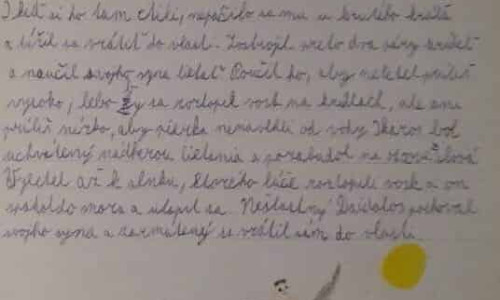 I keď si ho tam ctili, nepáčilo sa mu u krutého kráľa
a túžil sa vrátiť do vlasti. Zostrojil preto dva páry krídel
a naučil svojho syna lietať. Poučil ho, aby neletel príliš
vysoko, lebo by sa roztopil vosk na krídlach, ale ani
príliš nízko, aby pierka nenavlhli od vody. Ikaros bol
uchvátený nádherou lietania a pozabudol na otcove slová
Vyletel až k slnku, ktorého lúče roztopili vosk a on
spadol do mora a utopil sa. Nešťastný Daidalos pochoval
svojho syna a zarmútený sa vrátil sám do vlasti.